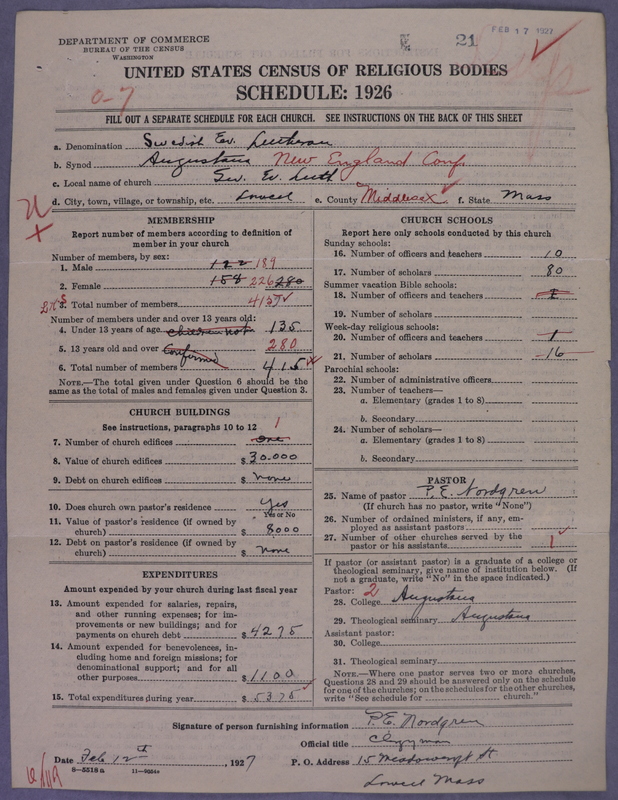 DEPARTMENT OF COMMERCE
BUREAU OF THE CENSUS
WASHINGTON
21
FEB 17 1927
UNITED STATES CENSUS OF RELIGIOUS BODIES
SCHEDULE: 1926
0-7
FILL OUT A SEPARATE SCHEDULE FOR EACH CHURCH. SEE INSTRUCTIONS ON THE BACK OF THIS SHEET
a. Denomination Swedish Ev. Lutheran
b. Synod Augustana New England Conf.
c. Local name of church Sw. Ev. Luth
d. City, town, village, or township, etc. Lowell e. County Middlesex f. State Mass
MEMBERSHIP
Report number of members according to definition of member in your church
Number of members, by sex:
1. Male 122 189
2. Female 158 226 280
3. Total number of members 415
Number of members under and over 13 years old:
4. Under 13 years of age children not 135
5. 13 years old and over Confirmed 280
6. Total number of members 415
NOTE.—The total given under Question 6 should be the same as the total of males and females given under Question 3.
CHURCH BUILDINGS
See instructions, paragraphs 10 to 12
7. Number of church edifices One 1
8. Value of church edifices $ 30.000
9. Debt on church edifices $ None
10. Does church own pastor's residence Yes
Yes or No
11. Value of pastor's residence (if owned by church) $ 8000
12. Debt on pastor's residence (if owned by church) $ None
EXPENDITURES
Amount expended by your church during last fiscal year
13. Amount expended for salaries, repairs, and other running expenses; for improvements or new buildings; and for payments on church debt $ 4275
14. Amount expended for benevolences, including home and foreign missions; for denominational support; and for all other purposes $ 1100
15. Total expenditures during year $ 5375
CHURCH SCHOOLS
Report here only schools conducted by this church
Sunday schools:
16. Number of officers and teachers 10
17. Number of scholars 80
Summer vacation Bible schools:
18. Number of officers and teachers
19. Number of scholars
Week-day religious schools:
20. Number of officers and teachers 1
21. Number of scholars 16
Parochial schools:
22. Number of administrative officers
23. Number of teachers—
a. Elementary (grades 1 to 8)
b. Secondary
24. Number of scholars—
a. Elementary (grades 1 to 8)
b. Secondary
PASTOR
25. Name of pastor P. E. Nordgren
(If church has no pastor, write "None")
26. Number of ordained ministers, if any, employed as assistant pastors
27. Number of other churches served by the pastor or his assistants 1
If pastor (or assistant pastor) is a graduate of a college or theological seminary, give name of institution below. (If not a graduate, write "No" in the space indicated.)
Pastor: 2
28. College Augustana
29. Theological seminary Augustana
Assistant pastor:
30. College
31. Theological seminary
NOTE.—Where one pastor serves two or more churches, Questions 28 and 29 should be answered only on the schedule for one of the churches; on the schedules for the other churches, write "See schedule for church."
Signature of person furnishing information P. E. Nordgren
Official title Clergyman
Date Feb 12th, 1927 P. O. Address 15 St.
Lowell Mass
8—5518 a 11—9504